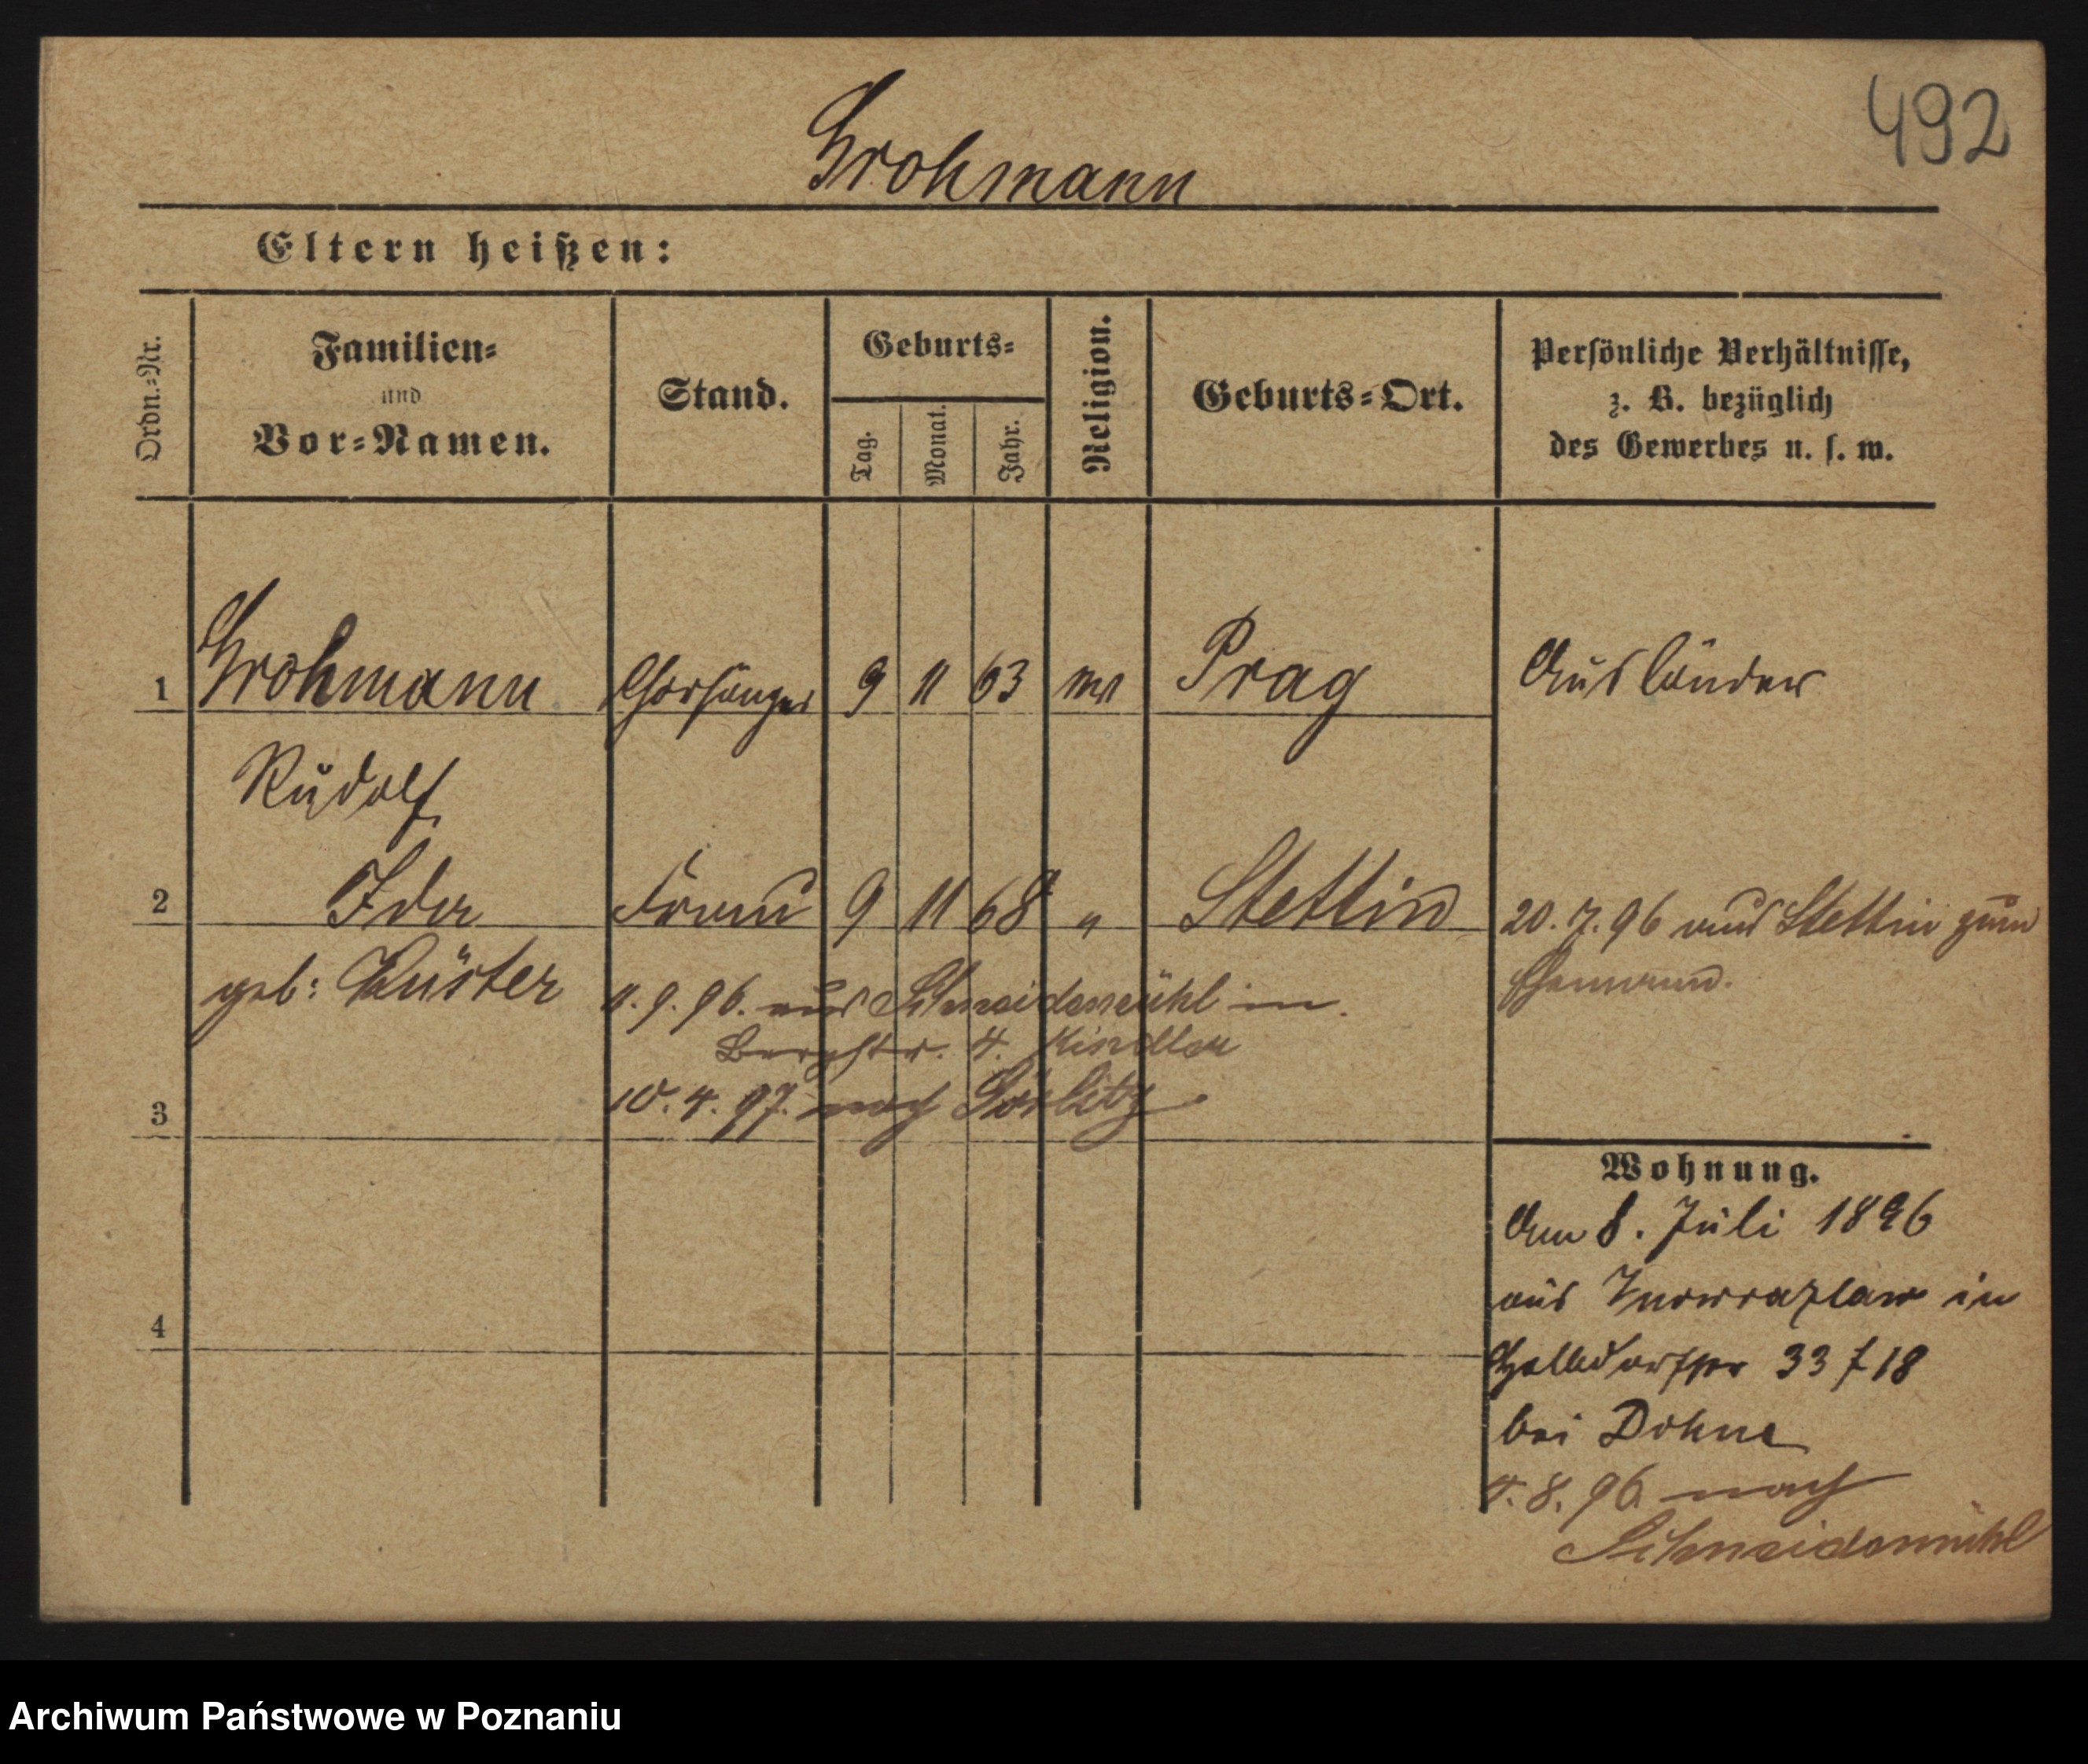 492
Grohmann
Eltern heißen:
Ordn.-Nr.
Familien-
und
Vor-Namen.
Stand.
Geburts-
Tag.
Monat.
Jahr.
Religion.
Geburts-Ort.
Persönliche Verhältnisse,
z. B. bezüglich
des Gewerbes u. s. w.
1 Grohmann Chorsänger 9 11 63 Prag Ausländer
Rudolf
2 Ida Frau 9 11 68 " Stettin 20.7.96 aus Stettin zum
Ehemann.
geb: Küster
11.9.96. aus Schneidemühl in.
4. Kindler
10.4.97. nach Görlitz
3
4
Wohnung.
Am 8. Juli 1896
aus Inowrazlaw in
33 f 18
bei Dohne
8.96 nach
Schneidemühl
Archiwum Państwowe w Poznaniu